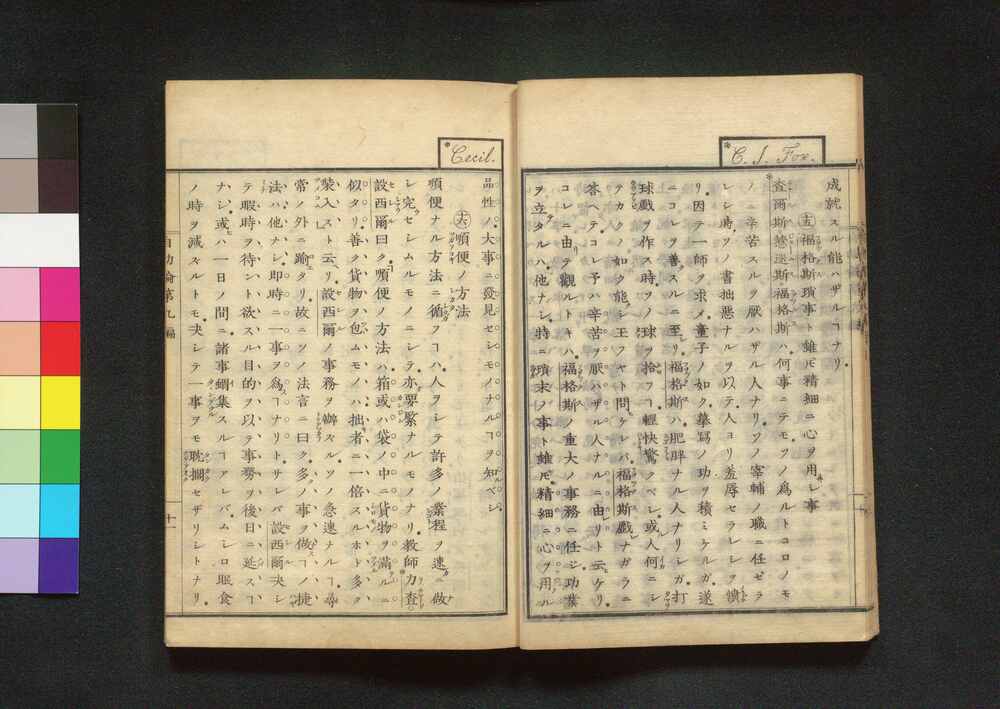 C. J. Fox.
成就スル能ハザルコナリ
十五 福格斯瑣事ト雖モ精細ニ心ヲ用シ事
査爾斯慈迷斯福格斯ハ何事ニテモソノ爲ルトコロノモ
ノニ辛苦スルヲ厭ハザル人ナリソノ宰輔ノ職ニ任ゼラ
レシ時ソノ書拙悪ナルヲ以テ人ヨリ羞辱セラレシヲ憤
リ因テ一師ヲ求メ童子ノ如ク摹寫ノ功ヲ積ミケルガ遂
ニコレヲ善スルニ至リ福格斯ハ肥胖ナル人ナリシガ打
球戯ヲ作ス時ソノ球ヲ拾フコ輕快驚ノベシ或人何ニシ
テカクノ如ク能シ玉フヤト問ケレバ福格斯戯ナガラニ
答ヘテコレ予ハ辛苦ヲ厭ハザル人ナルニ由リト云ケリ
コレニ由テ觀ルトキハ福格斯ノ重大ノ事務ニ任ジ功業
ヲ立タルハ他ナシ特ニ瑣末ノ事ト雖モ精細ニ心ヲ用ル
Cecil.
品性ノ大事ニ發見セシモノナルコヲ知ベシ
十六 順便ノ方法
順便ナル方法ニ循フコハ人ヲシテ許多ノ業程ヲ速ニ做
シ完セシムルモノニシテ亦要緊ナルモノナリ教師力査
設西爾曰ク順便ノ方法ハ箱或ハ袋ノ中ニ貨物ヲ滿ルニ
似タリ善ク貨物ヲ包ムモノハ拙者ニ一倍スルホド多ク
裝入スト云リ設西爾ノ事務ヲ辨スルソノ急速ナルコ尋
常ノ外ニ踰タリ故ニソノ法言ニ曰ク多ノ事ヲ做コノ捷
法ハ他ナシ即時ニ一事ヲ爲コナリトサレバ設西爾夬シ
テ暇時ヲ待ント欲スル目的ヲ以テ事務ヲ後日ニ延スコ
ナシ或ハ一日ノ間ニ諸事蝟集スルコアレバムシロ眠食
ノ時ヲ減スルトモ夬シテ一事ヲモ耽擱セザリシトナリ
自助論第九編
十一